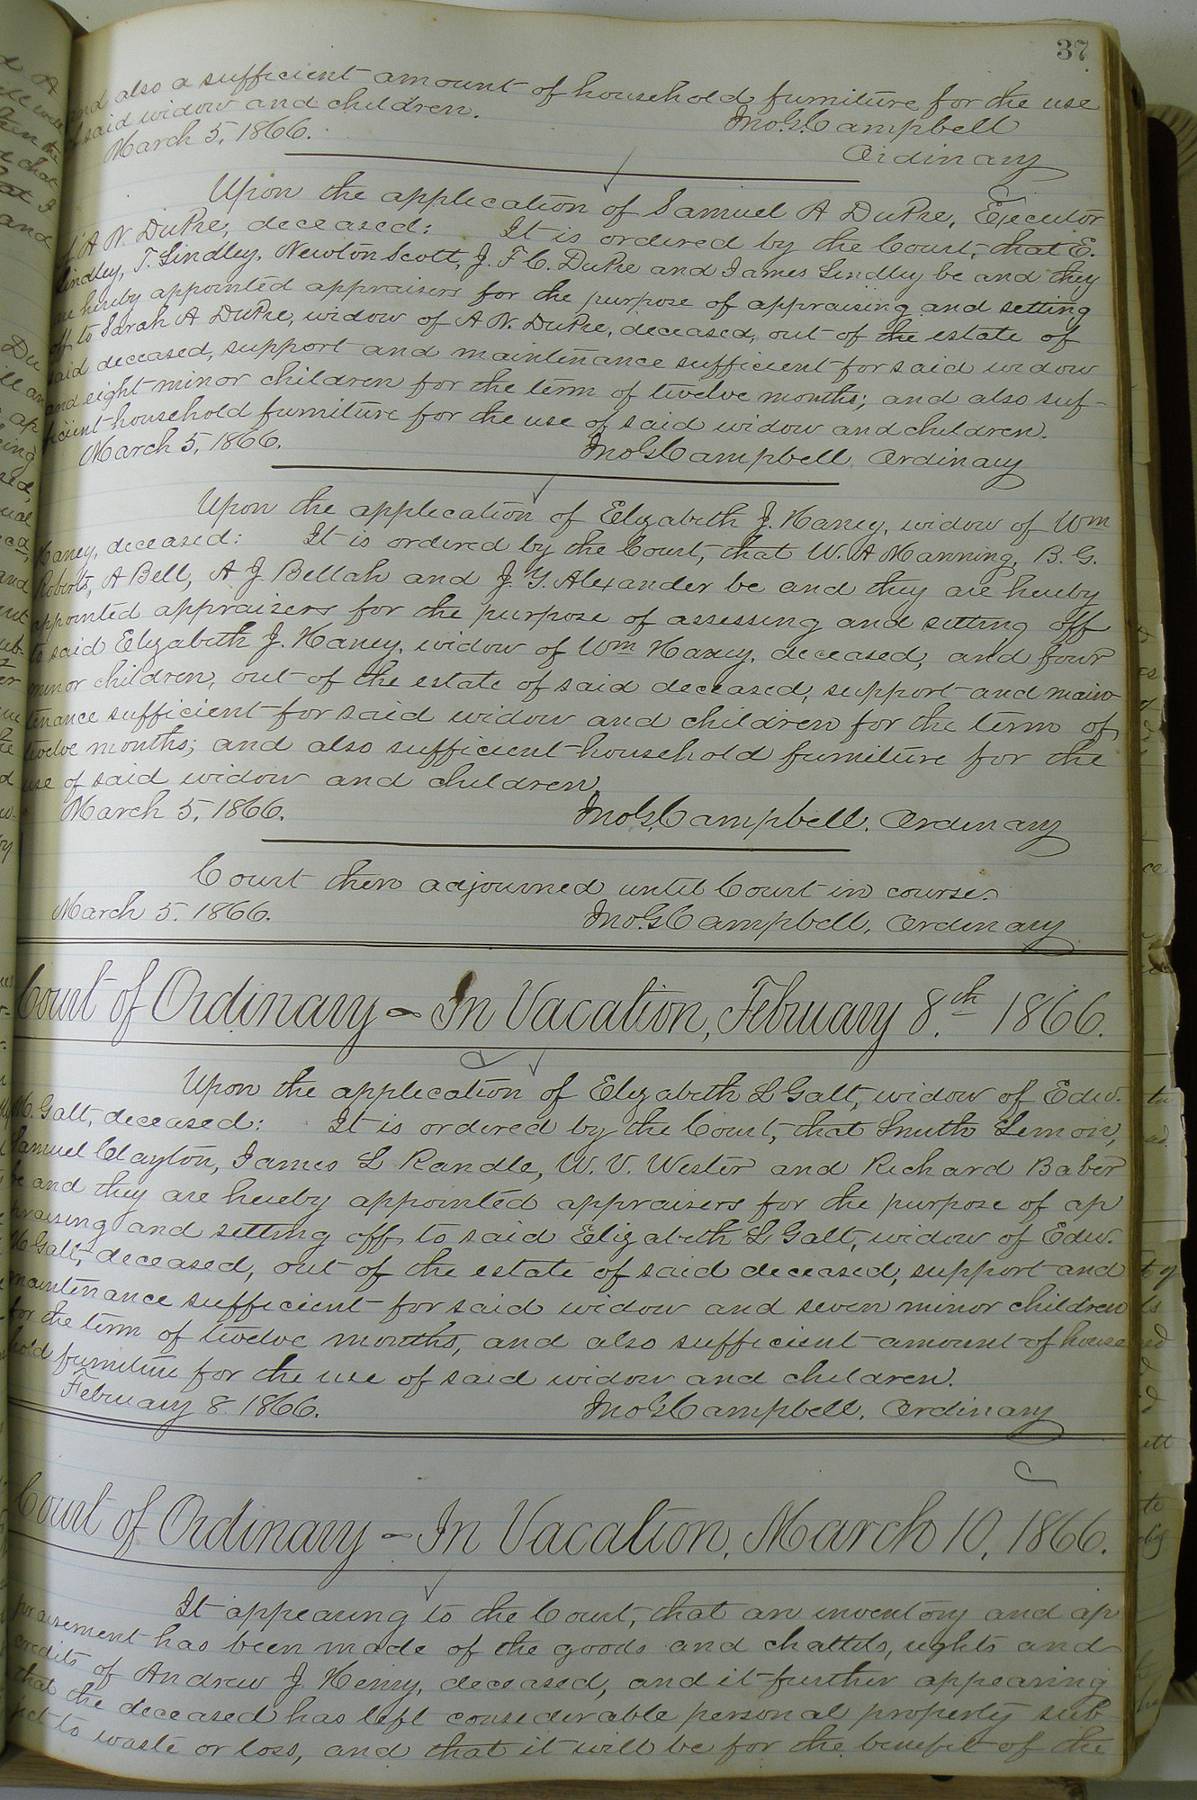 37
and also a sufficient amount of household furniture for the use
of said widow and children.
March 5, 1866. Jno G. Campbell
Ordinary
Upon the application of Samuel A DuPre, Executor
of A. N. DuPre, deceased: It is ordered by the Court, that E.
Lindley, T. Lindley, Newton Scott, J. F. C. DuPre and James Lindley be and they
are hereby appointed appraisers for the purpose of appraising and setting
off to Sarah A DuPre, widow of A N. DuPre, deceased, out of the estate of
said deceased, support and maintenance sufficient for said widow
and eight minor children for the term of twelve months; and also suf-
ficient household furniture for the use of said widow and children.
March 5, 1866. Jno G. Campbell, Ordinary
Upon the application of Elizabeth J. Haney, widow of Wm
Haney, deceased: It is ordered by the Court, that W. A Manning, B. G.
Roberts, A Bell, A J Bellah and J. Y. Alexander be and they are hereby
appointed appraisers for the purpose of assessing and setting off
to said Elizabeth J. Haney, widow of Wm Haney, deceased, and four
minor children, out of the estate of said deceased, support and main-
tenance sufficient for said widow and children for the term of
twelve months; and also sufficient household furniture for the
use of said widow and children
March 5, 1866. Jno G. Campbell. Ordinary
Court then adjourned until Court in course.
March 5. 1866. Jno. G. Campbell, Ordinary
Court of Ordinary - In Vacation, February 8.th 1866.
Upon the application of Elizabeth L Galt, widow of Edw.
M. Galt, deceased: It is ordered by the Court, that Smith Lemon,
Samuel Clayton, James L Randle, W. V. Wester and Richard Baber
be and they are hereby appointed appraisers for the purpose of ap
praising and setting off to said Elizabeth L Galt, widow of Edw.
M Galt, deceased, out of the estate of said deceased, support and
maintenance sufficient for said widow and seven minor children
for the term of twelve months, and also sufficient amount of house
hold furniture for the use of said widow and children.
February 8. 1866. Jno G. Campbell, Ordinary
Court of Ordinary - In Vacation, March 10, 1866.
It appearing to the Court, that an inventory and ap
praisement has been made of the goods and chattels, rights and
credits of Andrew J. Henry, deceased, and it further appearing
that the deceased has left considerable personal property sub
ject to waste or loss, and that it will be for the benefit of the